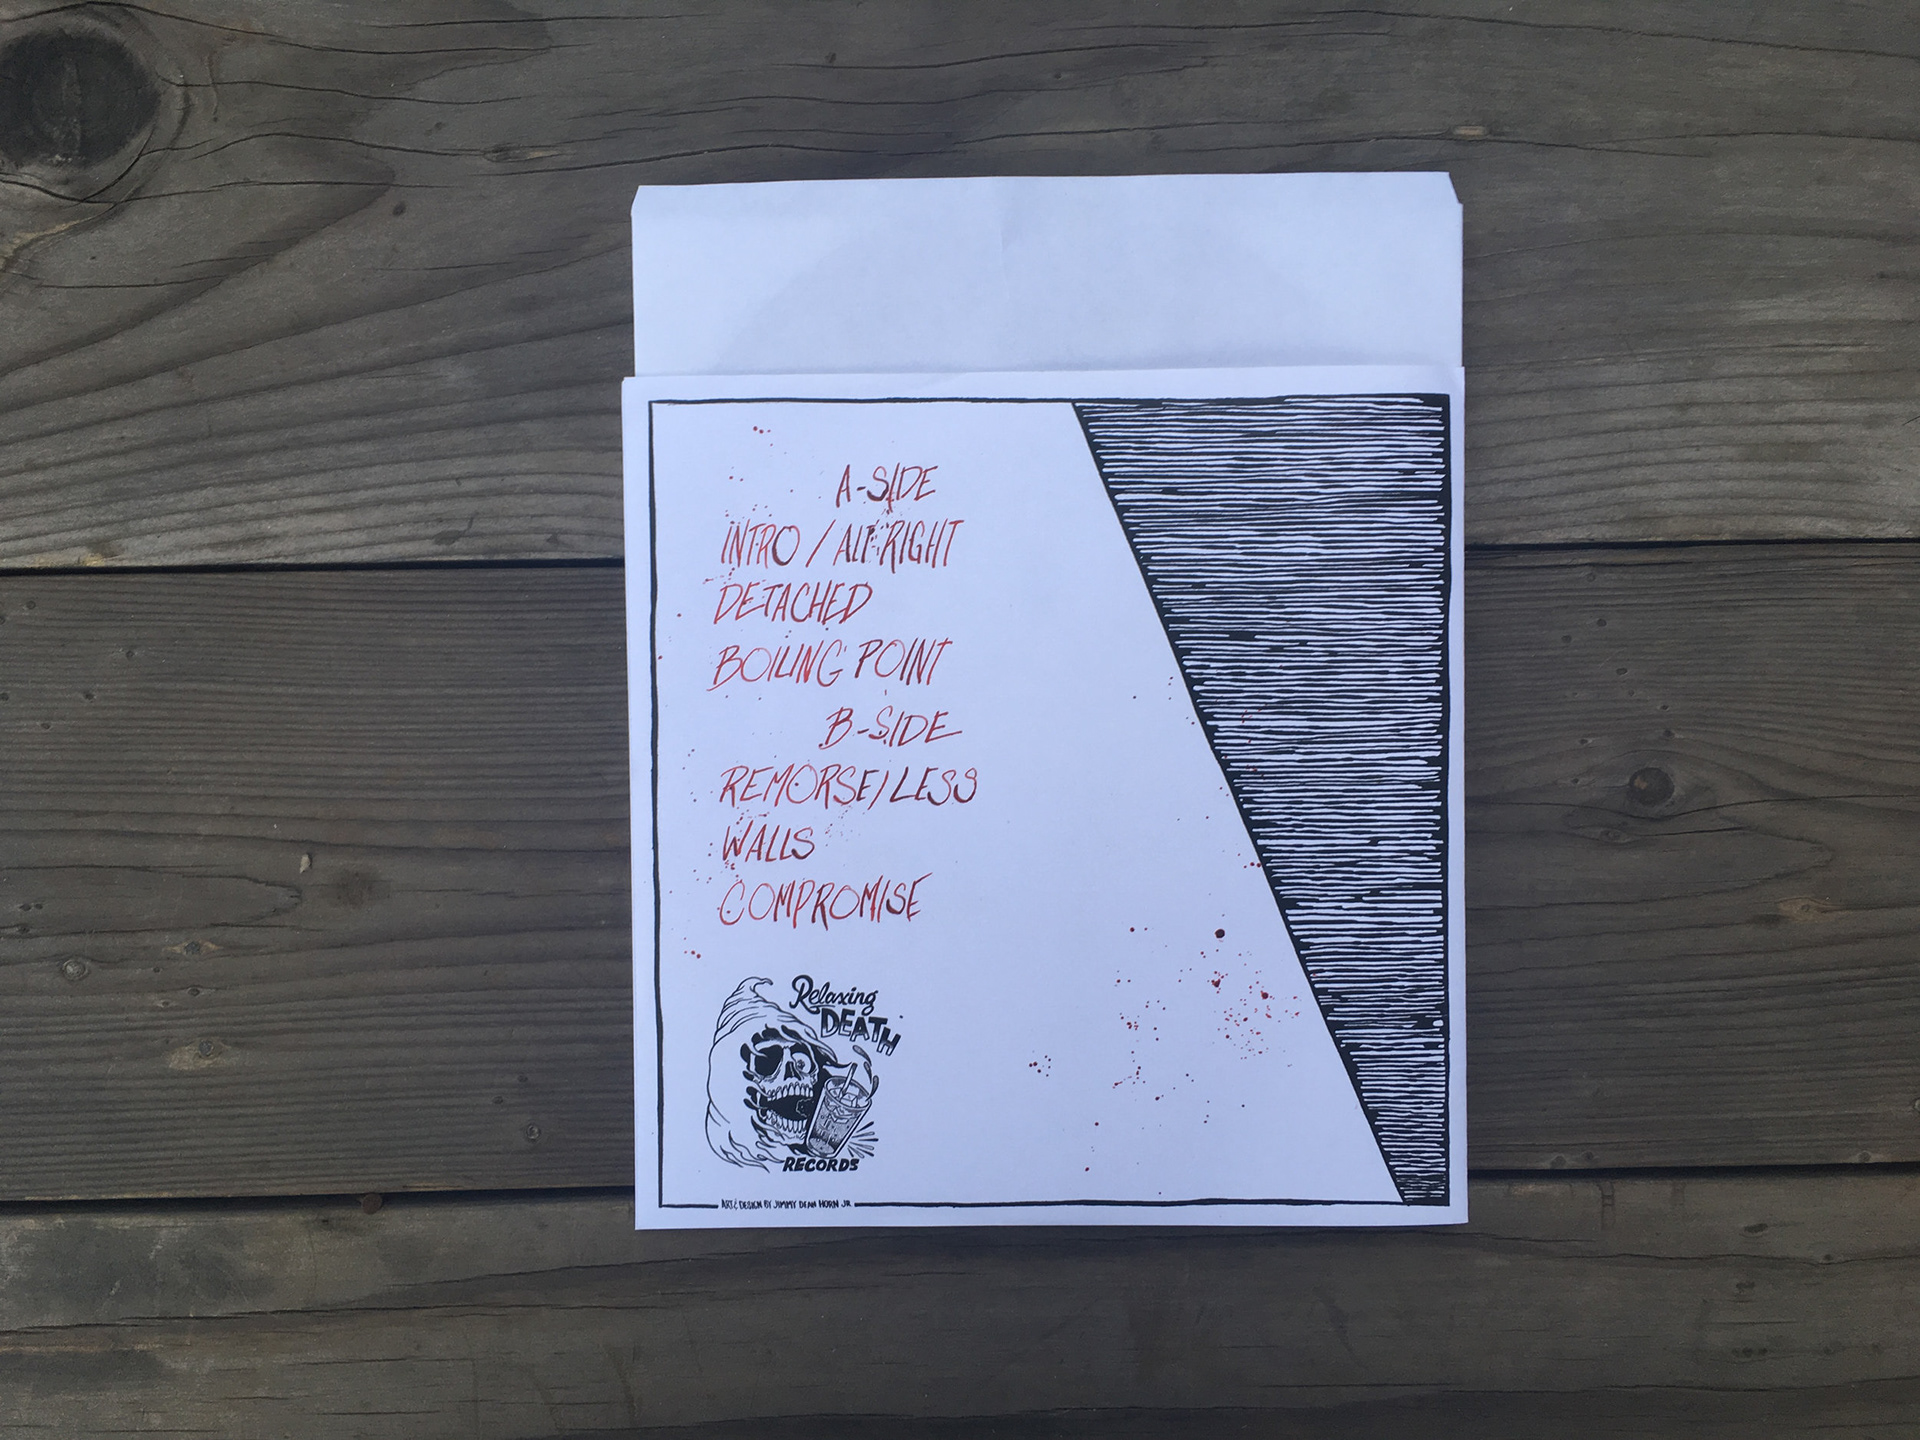 A-SIDE
INTRO / ALT-RIGHT
DETACHED
BOILING POINT
B-SIDE
REMORSE/LESS
WALLS
COMPROMISE
Relaxing
DEATH
RECORDS
ART & DESIGN BY JIMMY DEAN HORN JR